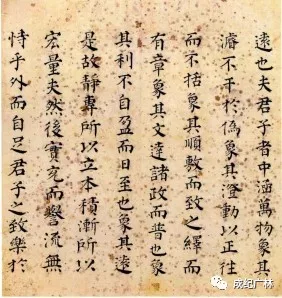 遠也夫君子者中涵萬物象其
濬不干於偽象其澄動以正往
而不括象其順敷而致之繹而
有章象其文達諸政而普也象
其利不自盈而日至也象其遠
是故靜專所以立本積漸所以
宏量夫然後實充而譽流無
恃乎外而自足君子之致樂於
成纪广林